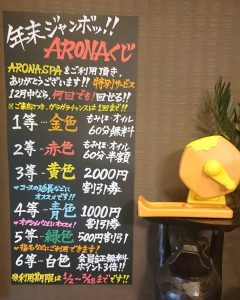 年末ジャンボッ!!
ARONAくじ
ARONA SPAをご利用頂き
ありがとうございます!! 特別サービス
12月中なら、何回でも!回せる!!
※ご来店につき、ガラガラチャンスは1回まで!!
1等…金色 もみほ・オイル
60分無料
2等…赤色 もみほ・オイル
60分半額
3等…黄色 2000円
割引券
※コースの延長などに
オススメです!!
4等…青色 1000円
割引券
5等…緑色 500円割引!
※指名などにご利用できます!
6等…白色
ポイント3倍!!
※利用期限は